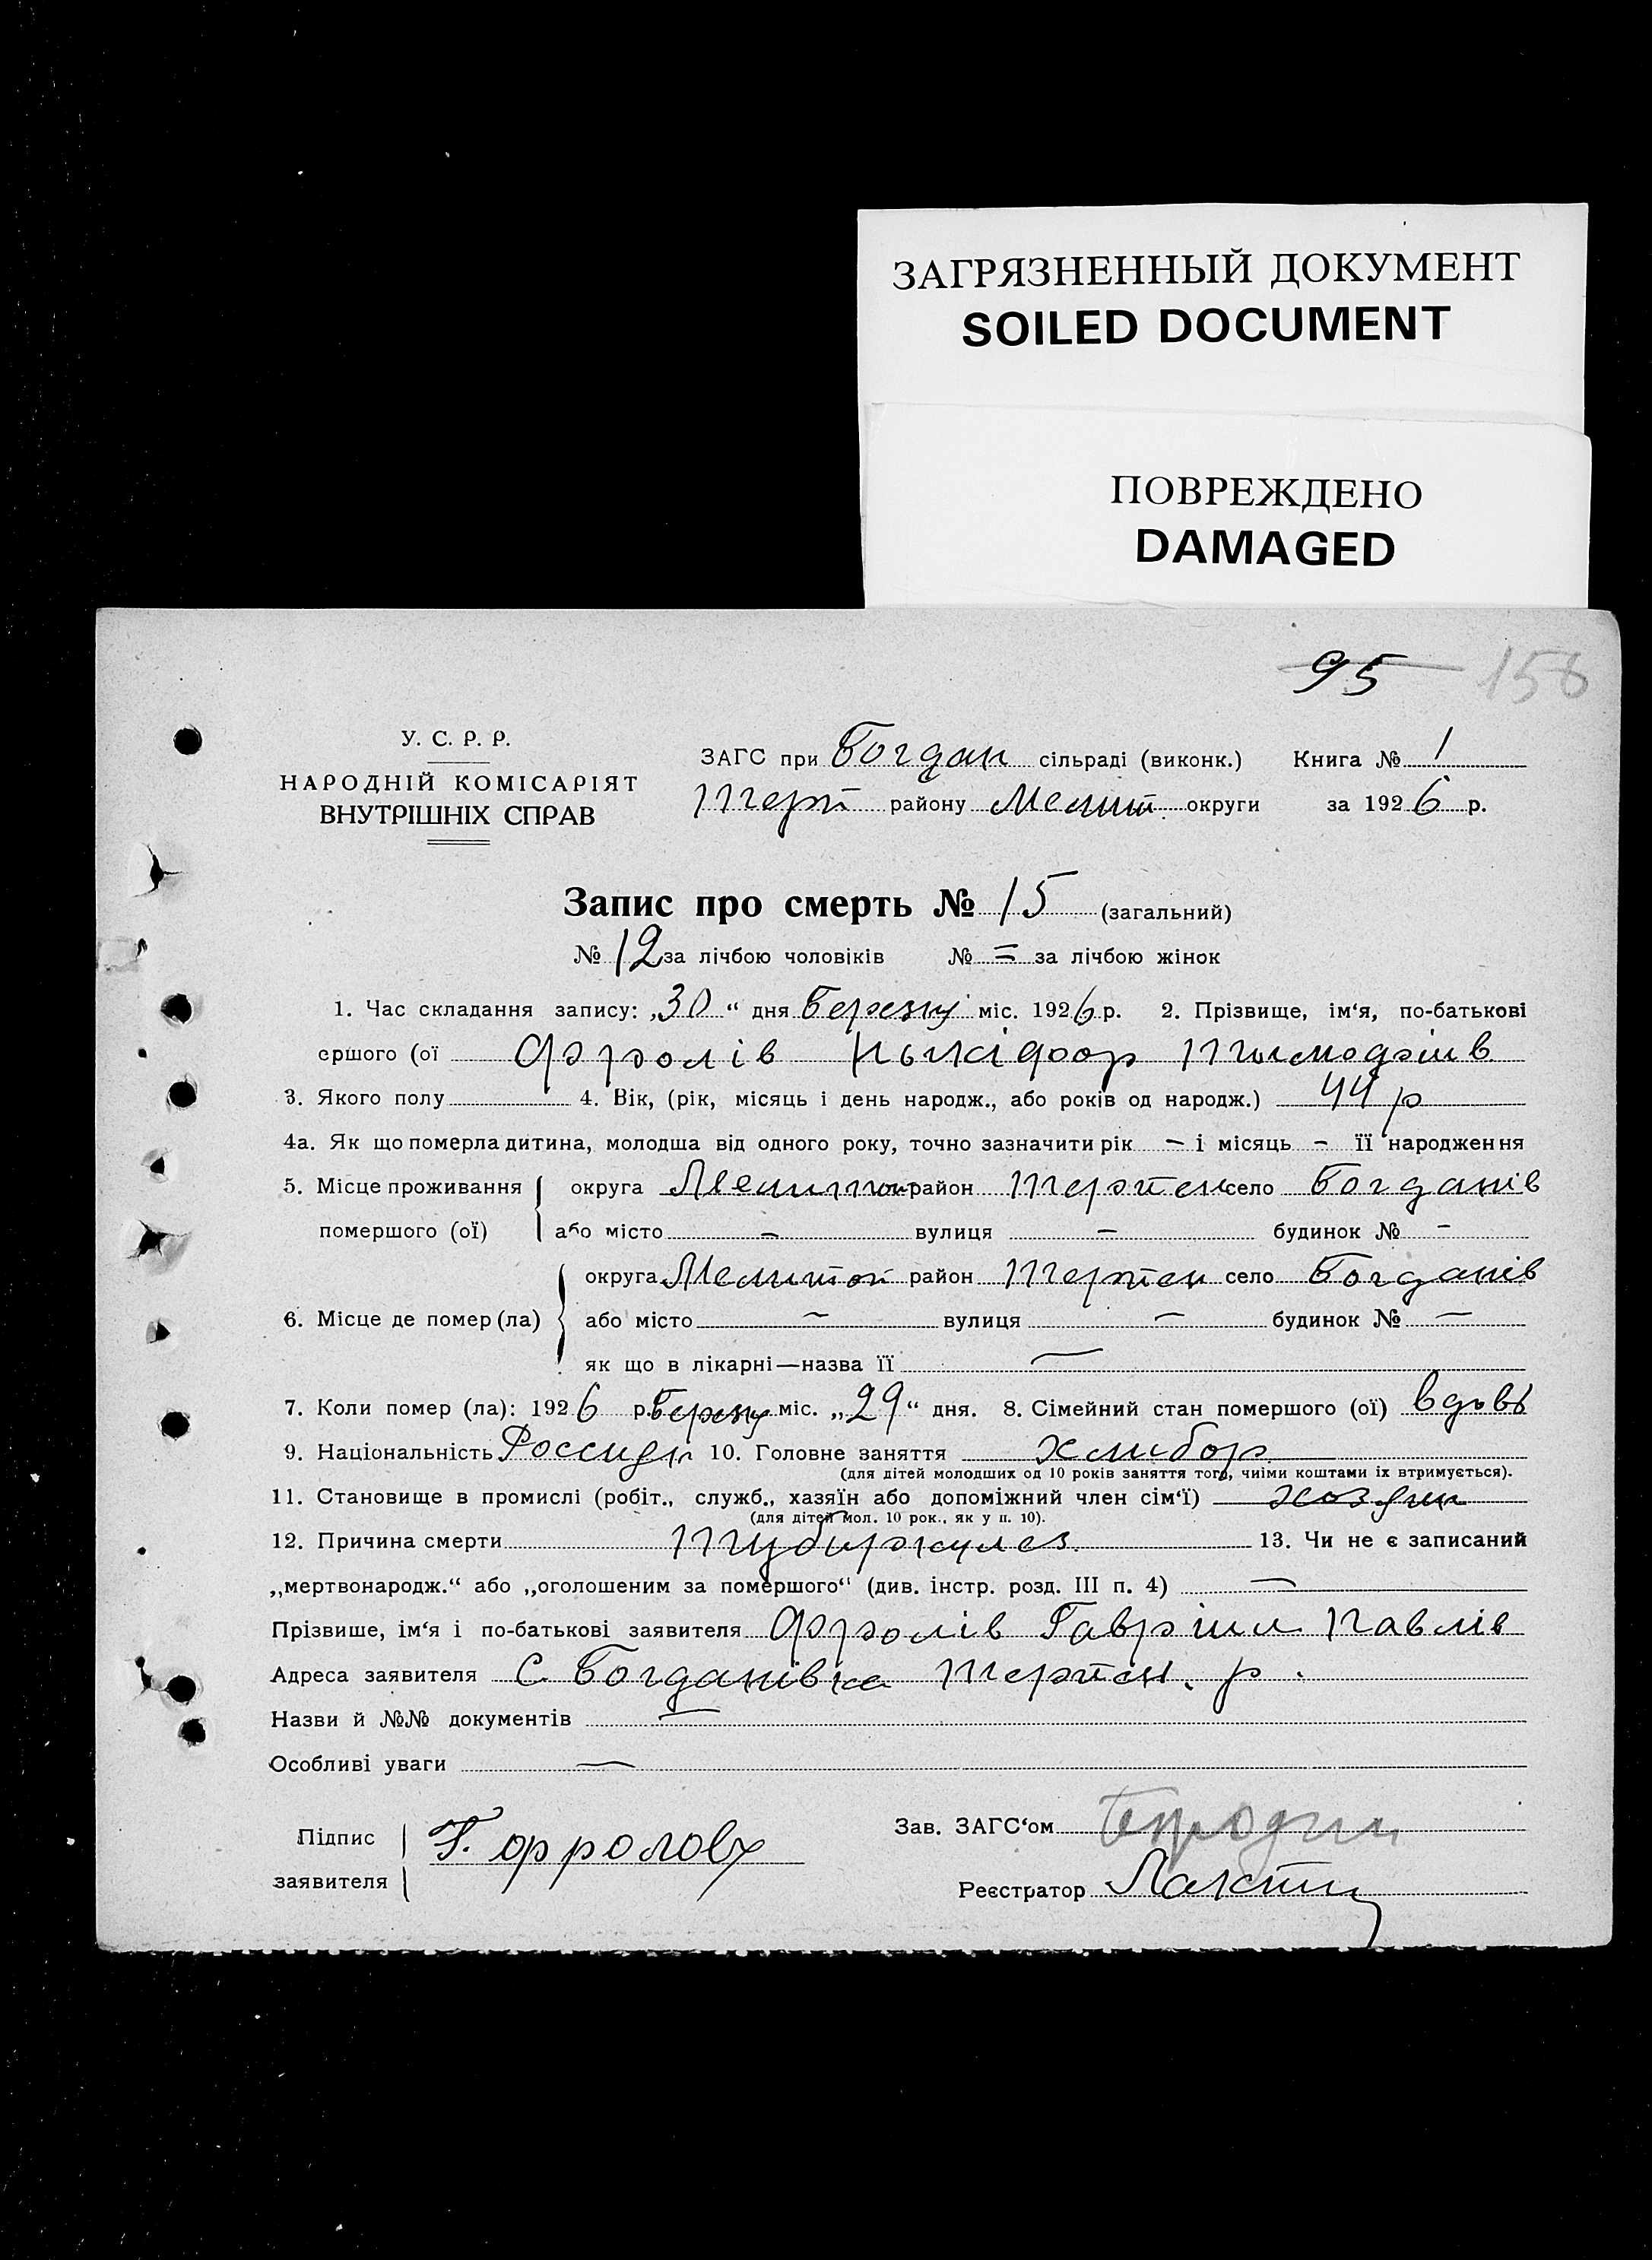 ЗАГРЯЗНЕННЫЙ ДОКУМЕНТ
SOILED DOCUMENT
ПОВРЕЖДЕНО
DAMAGED
95 156
У. С. Р. Р.
НАРОДНІЙ КОМІСАРІЯТ
ВНУТРІШНІХ СПРАВ
ЗАГС при Богдан сільраді (виконк.) Книга № 1
Терп району Мелит. округи за 1926 р.
Запис про смерть № 15 (загальний)
№ 12 за лічбою чоловіків № = за лічбою жінок
1. Час складання запису: „30“ дня Березну міс. 1926 р. 2. Прізвище, ім‘я, по-батькові
ершого (ої Фролів Никіфор
3. Якого полу 4. Вік, (рік, місяць і день народж., або років од народж.) 44 р
4а. Як що померла дитина, молодша від одного року, точно зазначити рік – і місяць – її народження
5. Місце проживання округа Мелитоп район Терпен село Богданів
померш­ого (ої) або місто – вулиця – будинок № –
округа Мелитоп район Терпен село Богданів
6. Місце де помер (ла) або місто – вулиця – будинок № –
як що в лікарні—назва її –
7. Коли помер (ла): 1926 р. Березну міс. „29“ дня. 8. Сімейний стан померш­ого (ої) вдовь
9. Національність 10. Головне заняття хлибор.
(для дітей молодших од 10 років заняття того, чиїми коштами їх втримується).
11. Становище в промислі (робіт., служб., хазяїн або допоміжний член сім‘ї) хозяин
(для дітей мол. 10 рок., як у п. 10).
12. Причина смерти Тубиркулез. 13. Чи не є записаний
„мертвонародж.“ або „оголошеним за померш­ого“ (див. інстр. розд. III п. 4) –
Прізвише, ім‘я і по-батькові заявителя Фролів Гавріил Павлів
Адреса заявителя С. Богданівка Терпен. р.
Назви й №№ документів –
Особливі уваги –
Підпис
заявителя Г. Фролов
Зав. ЗАГС‘ом
Реєстратор